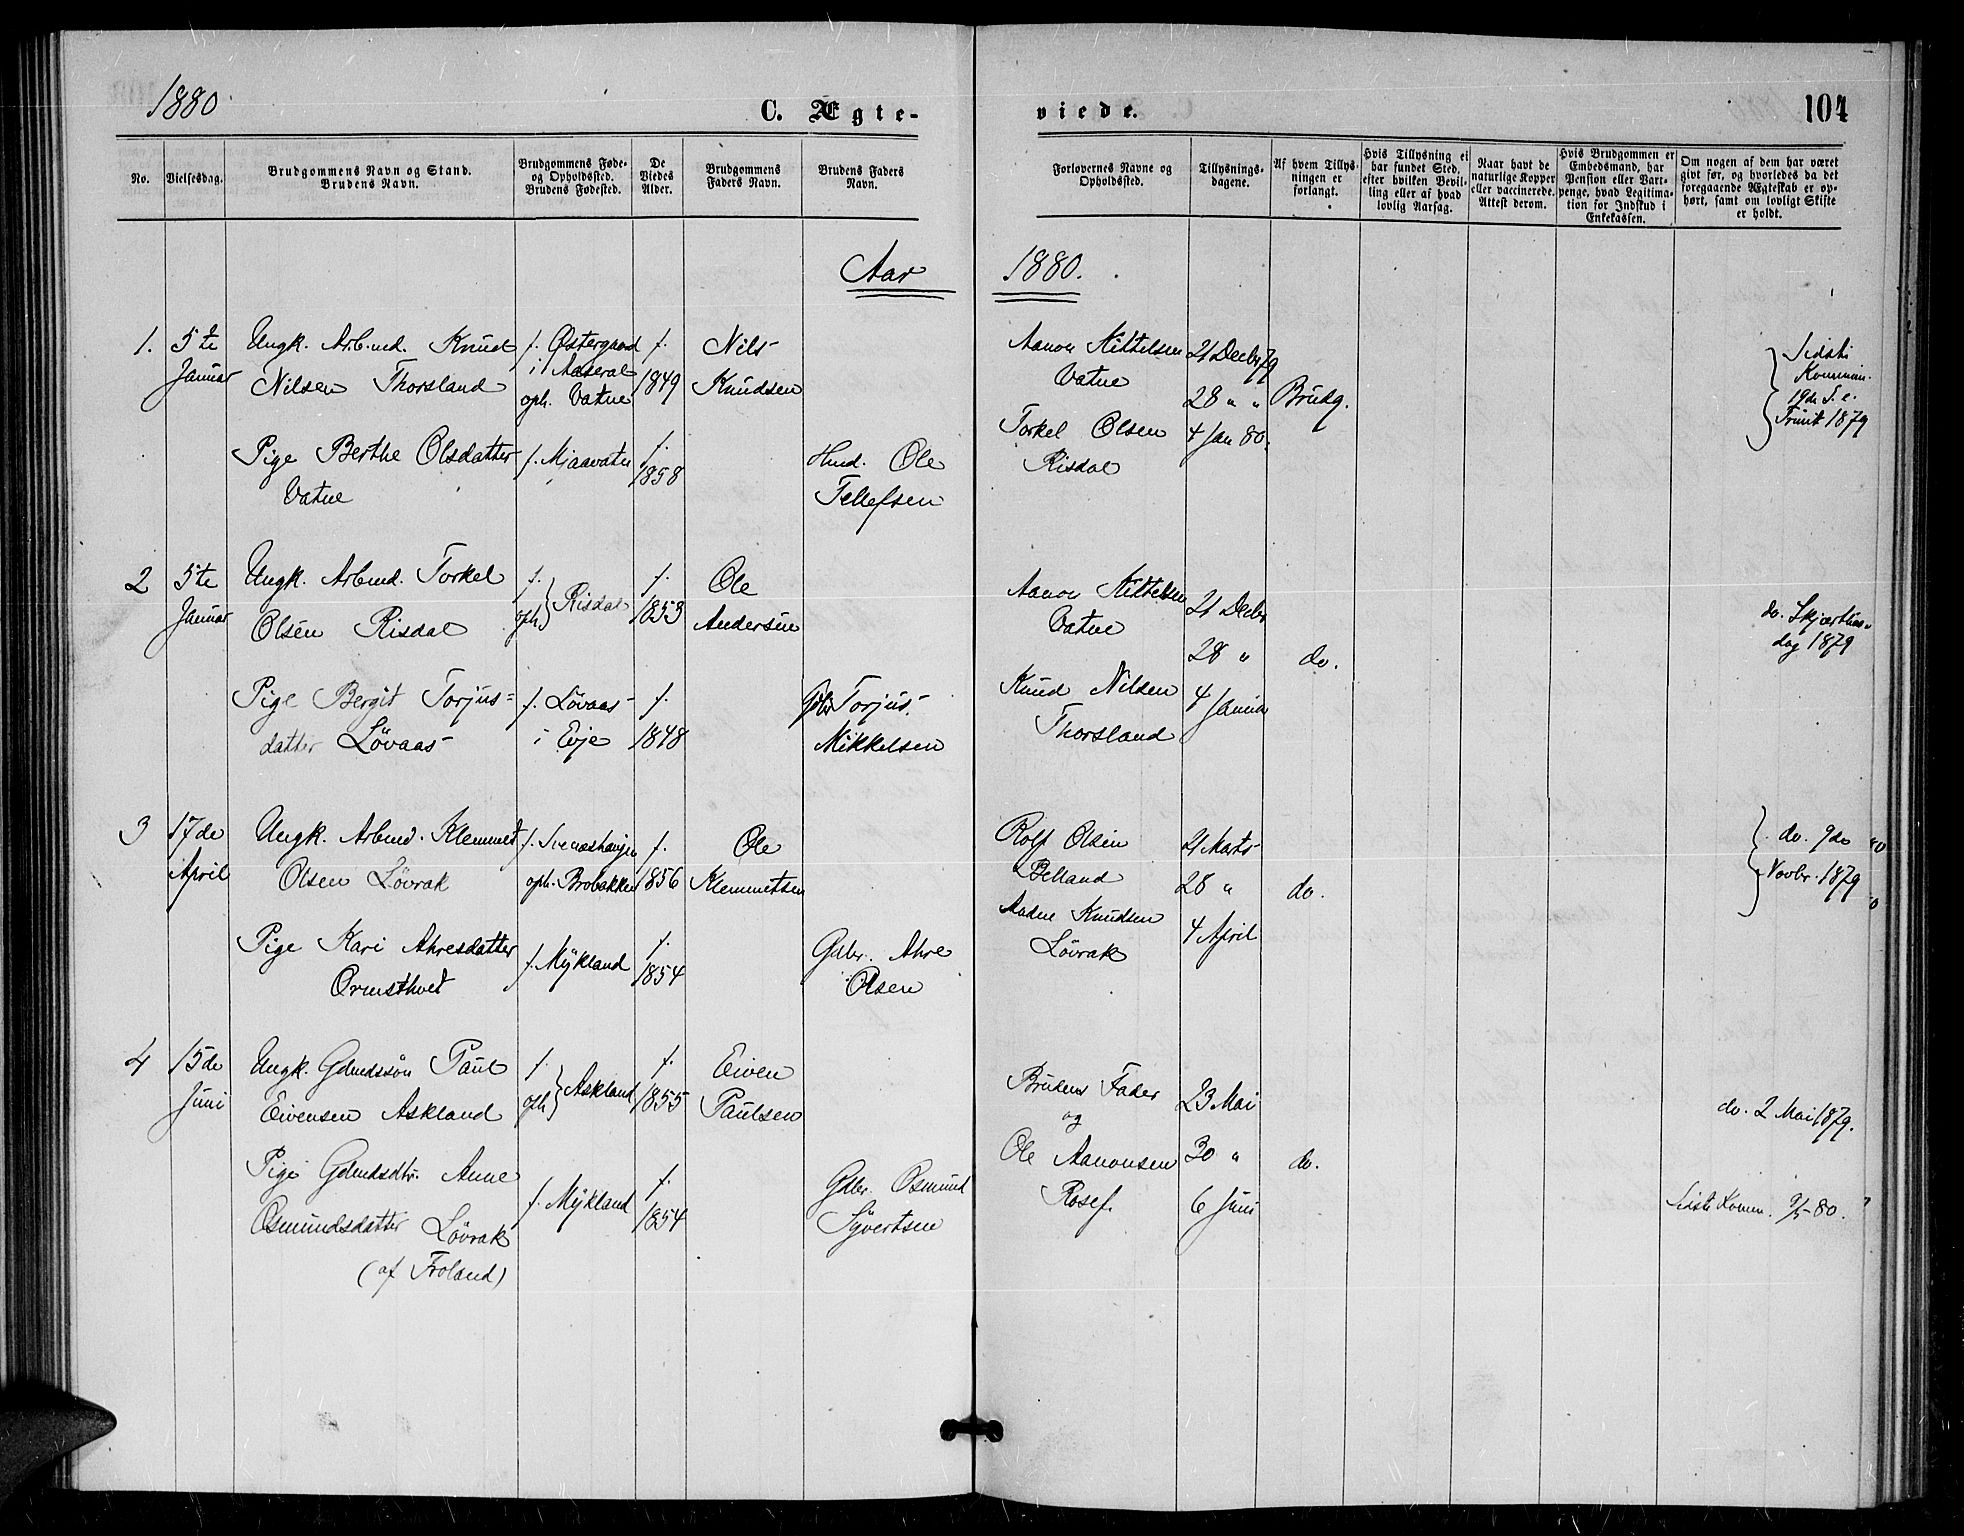 1880
C. Ægte-
No.
Vielsesdag.
Brudgommens Navn og Stand.
Brudens Navn.
Brudgommens Føde-
og Opholdssted.
Brudens Fødested.
De
Viedes
Alder.
Brudgommens
Faders Navn.
Brudens Faders
Navn.
Aar
1. 5te Ungk. Arbmd. Knud f. Østergaard f. Nils
Januar Nilsen Thorsland i Aaseral 1849 Knudsen
oph. Vatne
Pige Berthe Olsdatter f. Mjaavatn f. Hmd. Ole
Vatne 1858 Tellefsen
2 5te Ungk. Arbmd. Torkel f. Risdal f. Ole
Januar Olsen Risdal oph 1853 Andersen
Pige Bergit Torjus= f. Lövaas f. Gdbr Torjus
datter Lövaas i Evje 1848 Mikkelsen
3 17de Ungk. Arbmd. Klemmet f. f. Ole
April Olsen Lövrak oph. Brobakken 1856 Klemmetsen
Pige Kari Ahresdatter f. Mykland f. Gdbr. Ahre
Ormsthvet 1854 Olsen
4 15de Ungk. Gdmdssön Paul f. Askland f. Eiven
Juni Eivensen Askland oph 1855 Paulsen
Pige Gdmdsdtr. Anne f. Mykland f. Gdbr. Osmund
Osmundsdatter Lövrak 1854 Syvertsen
(af Froland)
viede.
104
Forlovernes Navne og
Opholdssted.
Tillysnings-
dagene.
Af hvem Tillys-
ningen er
forlangt.
Hvis Tillysning ei
har fundet Sted,
efter hvilken Bevil-
ling eller af hvad
lovlig Aarsag.
Naar havt de
naturlige Kopper
eller vaccinerede.
Attest derom.
Hvis Brudgommen er
Embedsmand, har
Pension eller Vart-
penge, hvad Legitima-
tion for Indskud i
Enkekassen.
Om nogen af dem har været
givt før, og hvorledes da det
foregaaende Ægteskab er op-
hørt, samt om lovligt Skifte
er holdt.
1880.
Aanon Kittelsen 21 Decbr 79 Sidste
Vatne Kommun.
28 " " Brudg. 19de S. e.
Torkel Olsen 4 Jan 80. Trinit 1879
Risdal
Aanon Kittelsen 21 Decbr do. Skjærthors
Vatne dag 1879
28 " do.
Knud Nilsen 4 Januar
Thorsland
Rolf Olsen 21 Marts do. 9de
Belland 28 " do. Novbr. 1879
Aadne Knudsen 4 April
Lövrak
Brudens Fader 23 Mai do. 2 Mai 1879.
og
Ole Aanonsen 30 " do.
Rosef. 6 Juni Sidste Komm. 9/5-80.